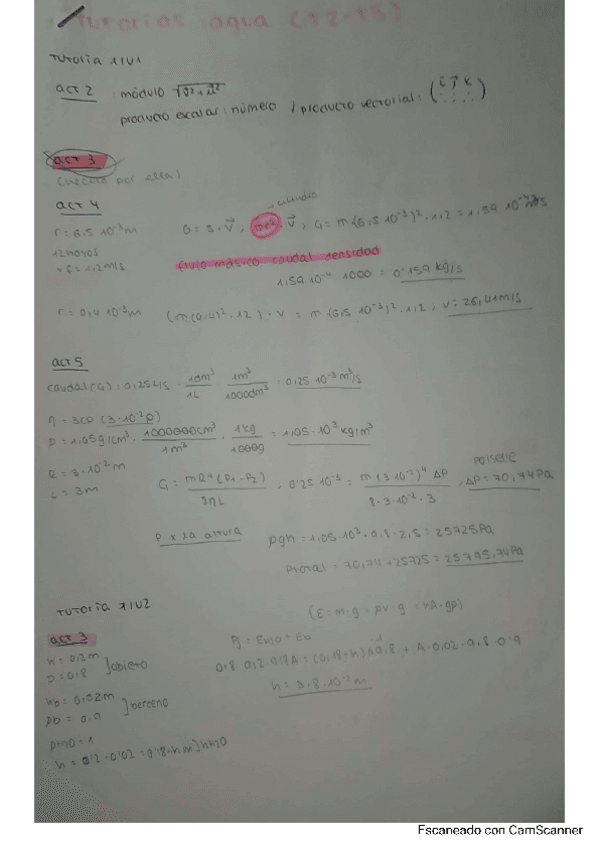 Tutorias agua (T2-T3)
TUTORIA 1 / U1
act 2 : módulo √v²+u²
producto escalar: número / producto vectorial: (i j k)
act 3
(hecho por ella)
act 4
r = 6,5 · 10⁻³ m
G = s · v⃗ , πr² · v⃗ , G = π (6,5 · 10⁻³)² · 1,2 = 1,59 · 10⁻⁴
12 hoyos
v = 1,2 m/s
flujo másico caudal densidad
1,59 · 10⁻⁴ · 1000 = 0'159 kg/s
r = 0,4 · 10⁻³ m
(π (0,4)² · 12) · v = π (6,5 · 10⁻³)² · 1,2 , v = 26,41 m/s
act 5
caudal (G) = 0,25 L/s · 1dm³/1L · 1m³/1000dm³ = 0,25 · 10⁻³ m³/s
η = 3cp (3 · 10⁻² p)
ρ = 1,05 g/cm³ · 1000000cm³/1m³ · 1kg/1000g = 1,05 · 10³ kg/m³
R = 3 · 10⁻² m
L = 3m
G = πR⁴ (P1 - P2)/8ηL , 0'25 · 10⁻³ = π (3 · 10⁻²)⁴ ΔP/8 · 3 · 10⁻² · 3 , ΔP = 70,74 Pa
P x la altura
ρgh = 1,05 · 10³ · 9,8 · 2,5 = 25725 Pa
Ptotal = 70,74 + 25725 = 25795,74 Pa
TUTORIA / U2
(E = m · g = ρv · g = hA · gρ)
act 3
h = 0,2m
ρ = 0,8
] objeto
hb = 0,02m
ρb = 0,9
] benceno
ρH2O = 1